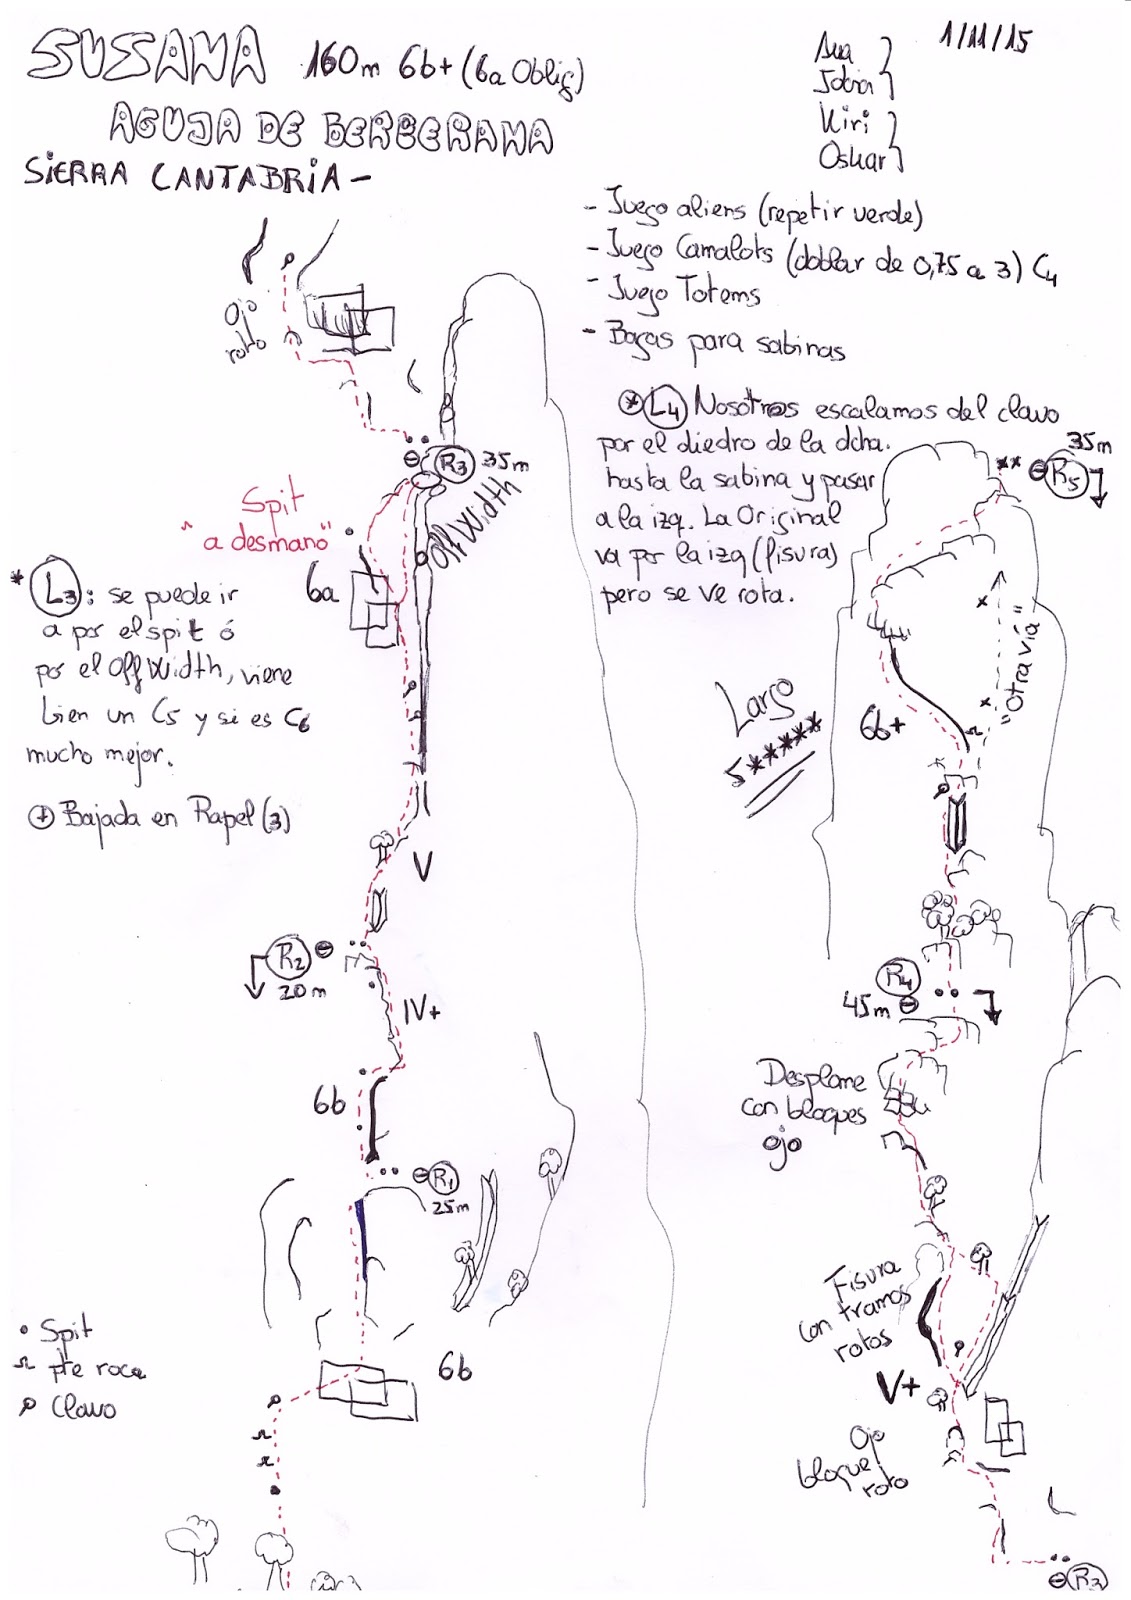 SUSANA 160m 6b+ (6a Oblig)
AGUJA DE BERBERANA
SIERRA CANTABRIA -
1/11/15
Ana
Kiri
Oskar
- Juego aliens (repetir verde)
- Juego Camalots (doblar de 0,75 a 3) C4
- Juego Totems
- Bagas para sabinas
* L4 Nosotros escalamos del clavo
por el diedro de la dcha.
hasta la sabina y pasar
a la izq. La Original
va por la izq (fisura)
pero se ve rota.
Ojo
roto
R3 35m
Off Width
Spit
"a desmano"
6a
* L3: se puede ir
a por el spit ó
por el Off Width, viene
bien un C5 y si es C6
mucho mejor.
+ Bajada en Rapel (3)
V
R2
20m
IV+
6b
R1
25m
6b
Spit
pte roca
Clavo
35m
R5
"Otra vía"
6b+
Largo
5*****
R4
45m
Desplome
con bloques
ojo
Fisura
con tramos
rotos
V+
Ojo
bloque
roto
R3